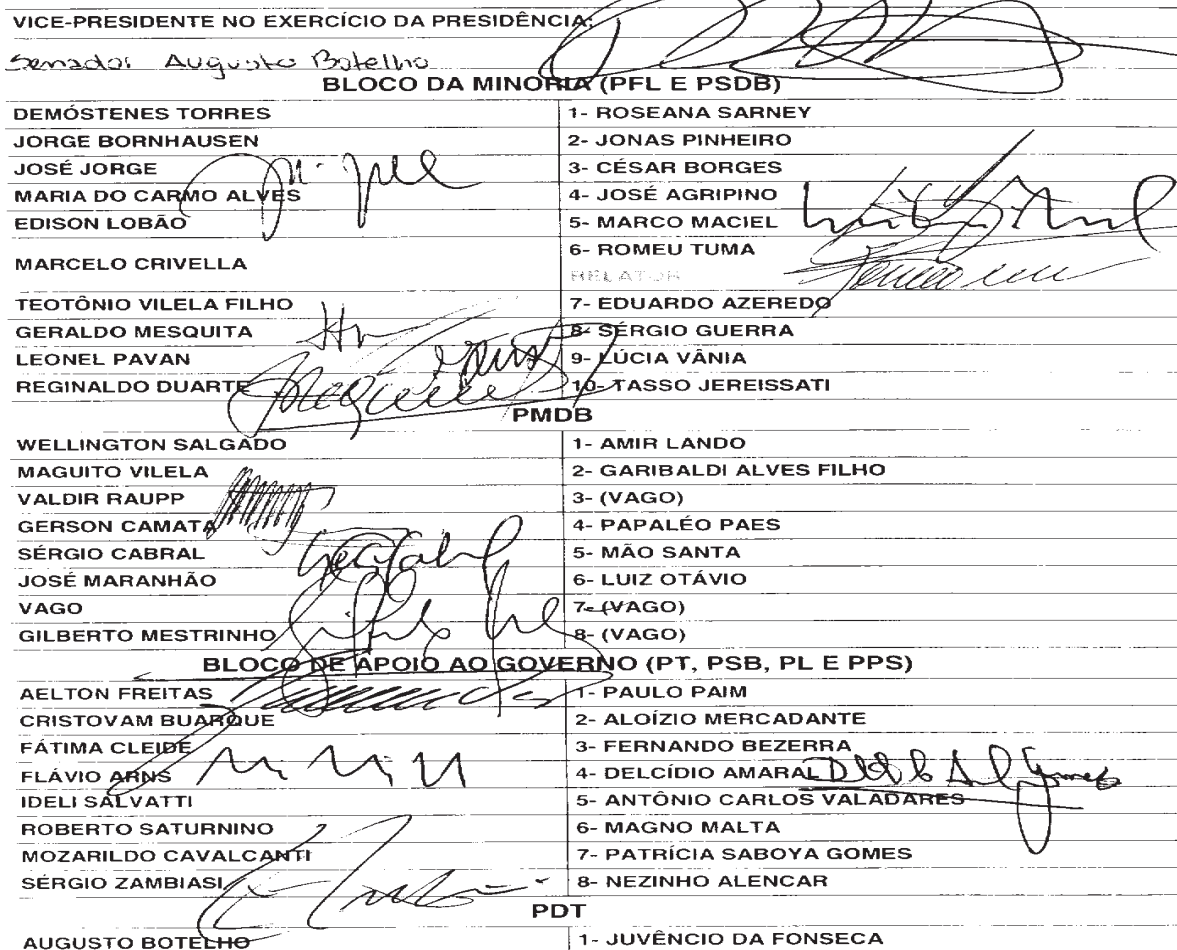 VICE-PRESIDENTE NO EXERCÍCIO DA PRESIDÊNCIA:
Senador Augusto Botelho
BLOCO DA MINORIA (PFL E PSDB)
DEMÓSTENES TORRES 1- ROSEANA SARNEY
JORGE BORNHAUSEN 2- JONAS PINHEIRO
JOSÉ JORGE 3- CÉSAR BORGES
MARIA DO CARMO ALVES 4- JOSÉ AGRIPINO
EDISON LOBÃO 5- MARCO MACIEL
MARCELO CRIVELLA 6- ROMEU TUMA
RELATOR
TEOTÔNIO VILELA FILHO 7- EDUARDO AZEREDO
GERALDO MESQUITA 8- SÉRGIO GUERRA
LEONEL PAVAN 9- LÚCIA VÂNIA
REGINALDO DUARTE 10- TASSO JEREISSATI
PMDB
WELLINGTON SALGADO 1- AMIR LANDO
MAGUITO VILELA 2- GARIBALDI ALVES FILHO
VALDIR RAUPP 3- (VAGO)
GERSON CAMATA 4- PAPALÉO PAES
SÉRGIO CABRAL 5- MÃO SANTA
JOSÉ MARANHÃO 6- LUIZ OTÁVIO
VAGO 7- (VAGO)
GILBERTO MESTRINHO 8- (VAGO)
BLOCO DE APOIO AO GOVERNO (PT, PSB, PL E PPS)
AELTON FREITAS 1- PAULO PAIM
CRISTOVAM BUARQUE 2- ALOÍZIO MERCADANTE
FÁTIMA CLEIDE 3- FERNANDO BEZERRA
FLÁVIO ARNS 4- DELCÍDIO AMARAL
IDELI SALVATTI 5- ANTÔNIO CARLOS VALADARES
ROBERTO SATURNINO 6- MAGNO MALTA
MOZARILDO CAVALCANTI 7- PATRÍCIA SABOYA GOMES
SÉRGIO ZAMBIASI 8- NEZINHO ALENCAR
PDT
AUGUSTO BOTELHO 1- JUVÊNCIO DA FONSECA